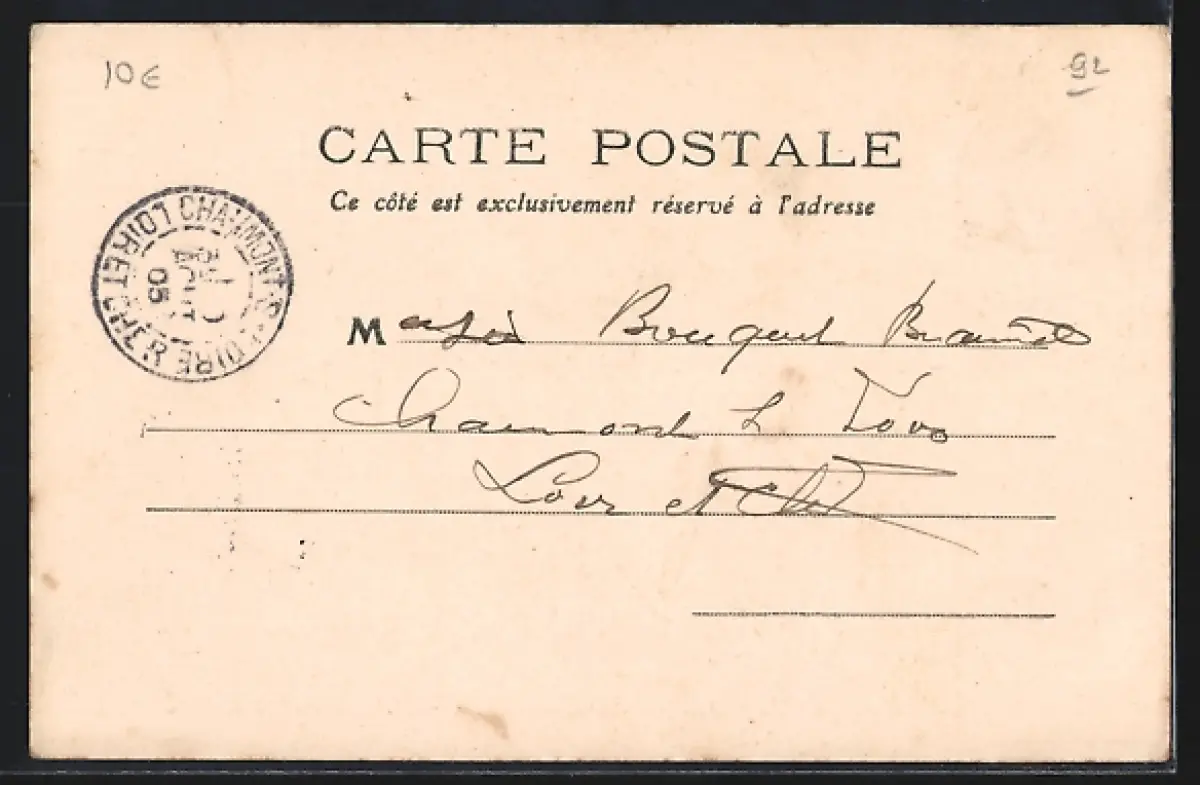 10€
92
CARTE POSTALE
Ce côté est exclusivement réservé à l'adresse
CHAUMONT-S-LOIRE LOIR ET CHER
05
M Bouquet
Chaumont s Loire
Loir et Cher